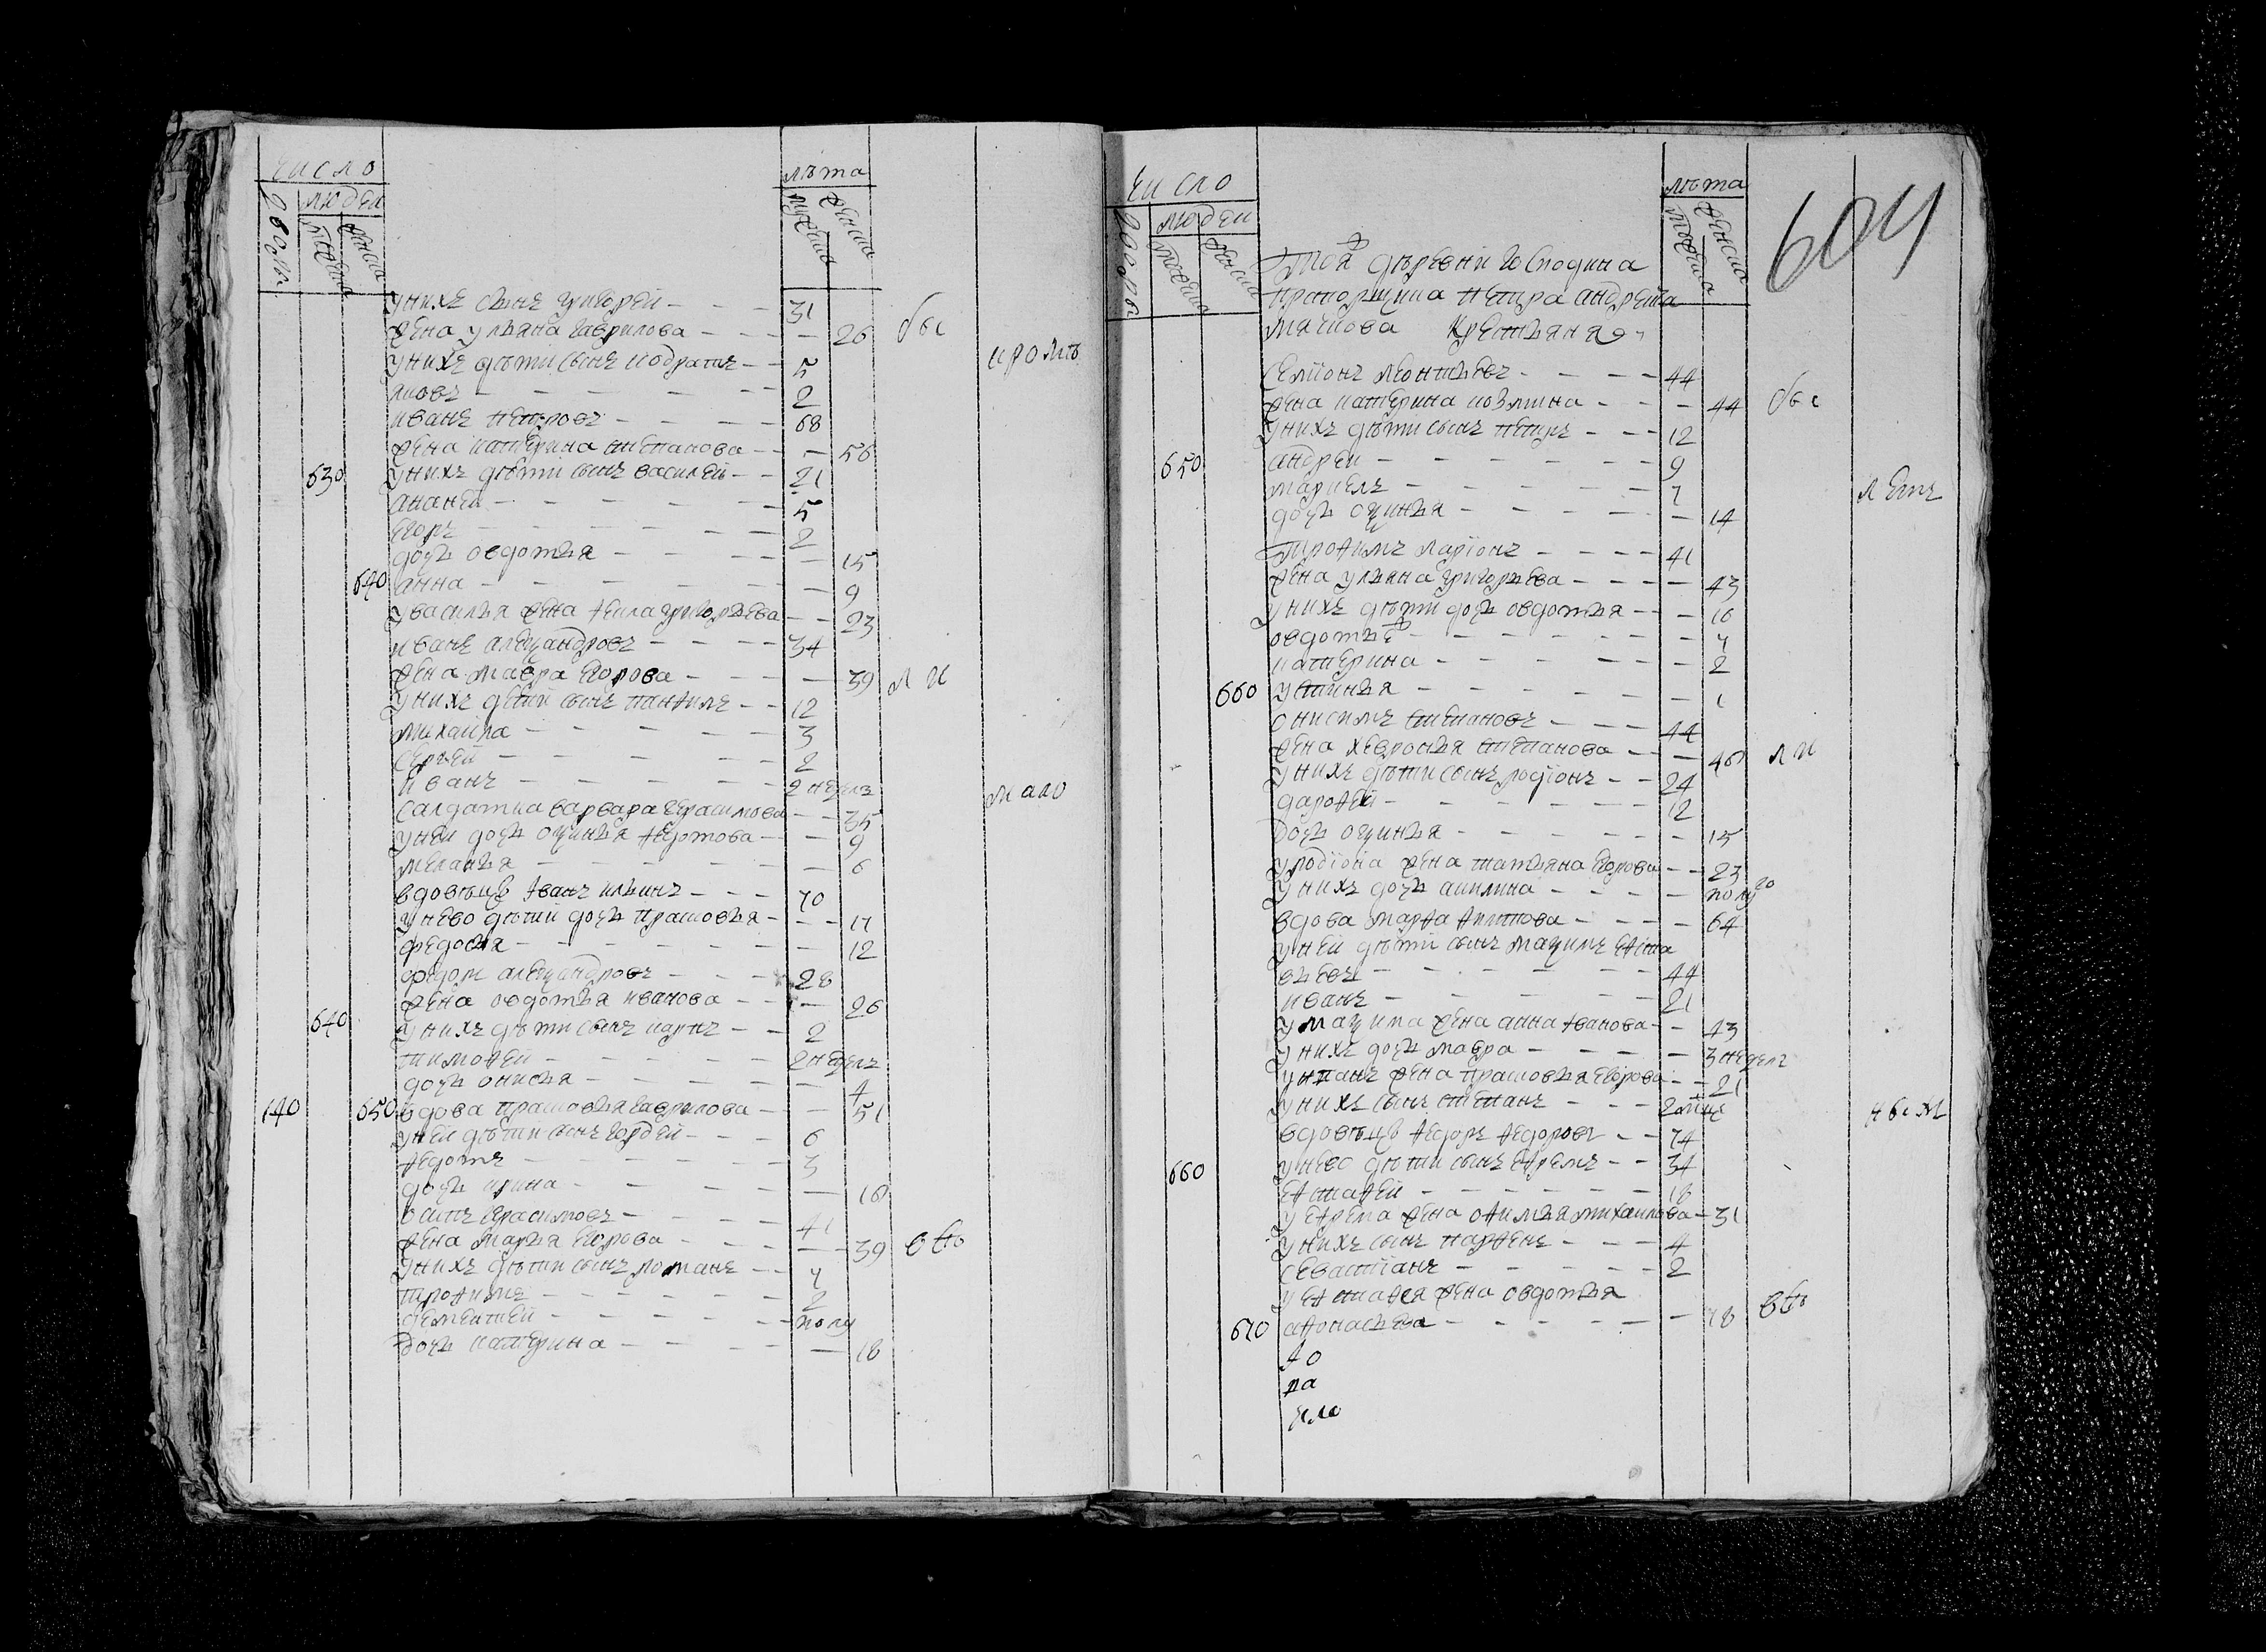 число
лѣта
дворы
людей
мужеска
женска
мужеска
женска
у нихъ сынъ григорей - - - 31
жена ульяна гаврилова - - - - 26 бы
кромѣ
у нихъ дѣти сынъ кодратъ - - 5
яковъ - - - - - - 2
иванъ петровъ - - - - 68
жена катерина степанова - - - 56
630 у нихъ дѣти сынъ василей - - 21
ананей - - - - - 5
егоръ - - - - - 2
дочь овдотья - - - - - 15
640 анна - - - - - - 9
у василья жена фекла григорьева - - 23
иванъ александровъ - - - - 34
жена мавра егорова - - - - 39 ли
у нихъ дети сынъ панфилъ - - 12
михайла - - - - - 3
сергей - - - - - 2
иванъ - - - - - 2 недель
мало
салдатка варвара герасимова - - 35
у ней дочь оксинья федотова - - 9
меланья - - - - - - 6
вдовецъ иванъ ильинъ - - - 70
у нево дѣтей дочь прасковья - - - 17
федосья - - - - - - 12
федоръ александровъ - - - 28
жена овдотья иванова - - - 26
640 у нихъ дѣти сынъ карпъ - - 2
тимофей - - - - - 2 недель
дочь онисья - - - - - 4
140 650 вдова прасковья гаврилова - - - 51
у ней дѣти сынъ гордей - - - 6
федотъ - - - - - 3
дочь ирина - - - - - 10
осипъ герасимовъ - - - - 41
жена марья егорова - - - - 39 въ
у нихъ дѣти сынъ романъ - - 7
трофимъ - - - - - 2
дементей - - - - - полу
дочь катерина - - - - - 18
число
лѣта
604
дворы
людей
мужеска
женска
мужеска
женска
Той деревни господина
прапорщика петра андреева
крестьяня
семионъ леонтьевъ - - - - 44
жена катерина козмина - - - - 44 бы
у нихъ дѣти сынъ петръ - - - 12
650 андрей - - - - - - 9
маркелъ - - - - - 7
дочь оксинья - - - - - 14
трофимъ ларионъ - - - - 41
жена ульяна григорьева - - - - 43
у нихъ дѣти дочь овдотья - - - 10
овдотья - - - - - - 7
катерина - - - - - 2
660 устинья - - - - - - 1
онисимъ степановъ - - - 44
жена хевронья степанова - - - 46 ли
у нихъ дѣти сынъ родионъ - - 24
дарофей - - - - - - 12
дочь оксинья - - - - - - 15
у родиона жена татьяна егорова - - 23
у нихъ дочь акилина - - - - полу
вдова марфа - - - - 64
у ней дѣти сынъ максимъ
44
иванъ - - - - - - 21
у максима жена анна иванова - - 43
у нихъ дочь мавра - - - - - 3 недель
жена прасковья егорова - - 21
у нихъ сынъ степанъ - - - 2
вдовецъ федоръ федоровъ - - 74
660 у нево дѣти сынъ ефремъ - - 34
18
у ефрема жена офимья михаилова - 31
у нихъ сынъ парфенъ - - - 4
севастианъ - - - - - 2
жена овдотья
670 афонасьева - - - - - - 18 въ